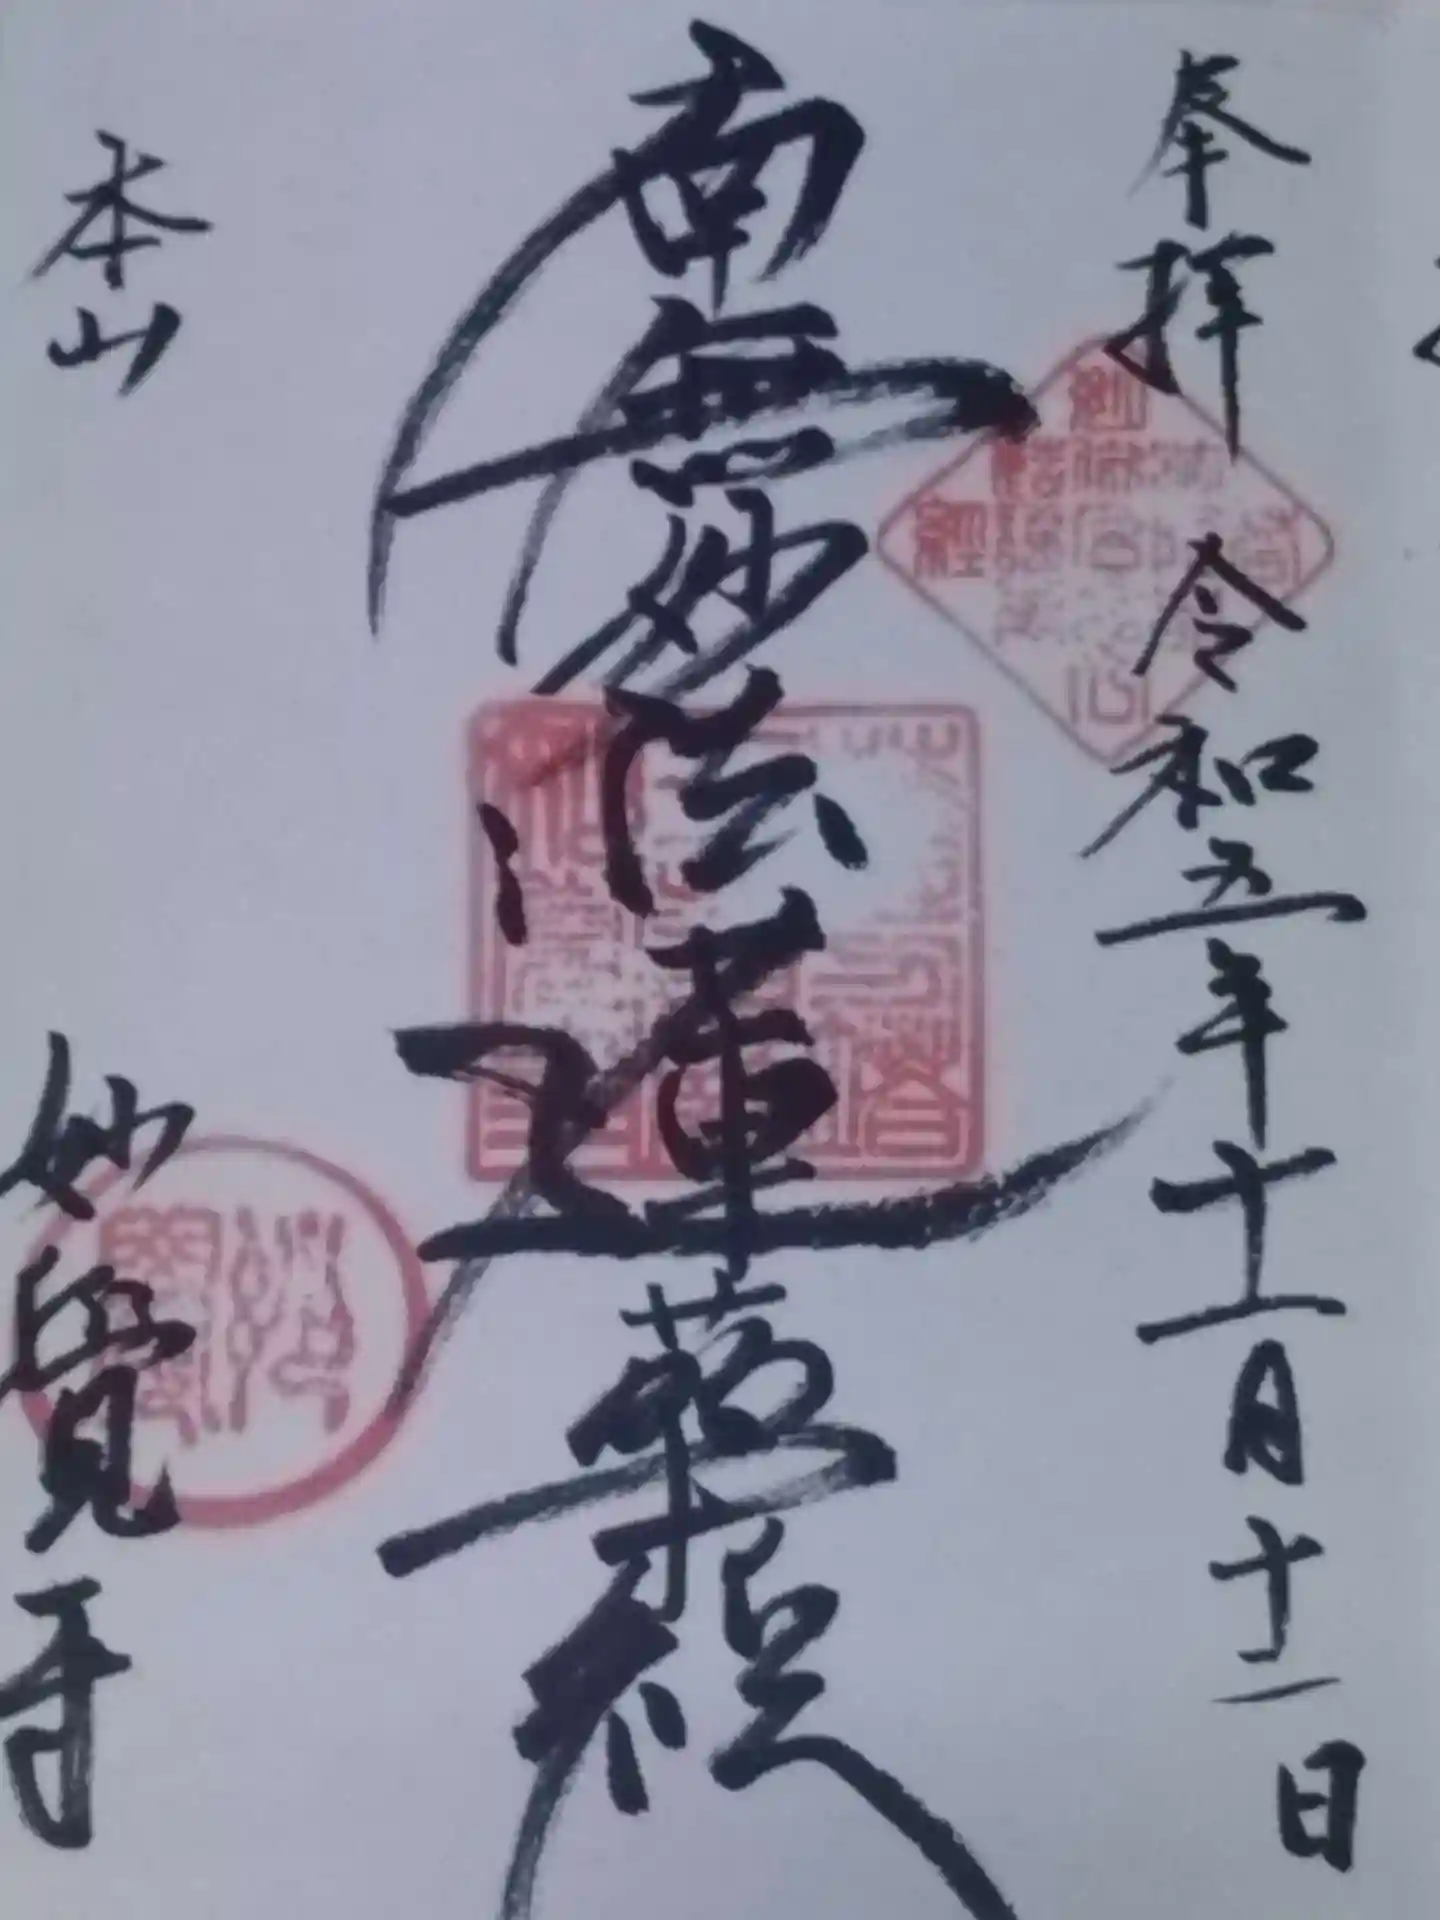 奉拝 令和五年十一月十二日
南無妙法蓮華経
本山 妙覚寺